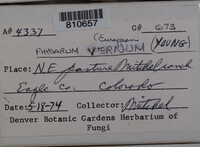 810657
A# 4337 G# 673
(European
PHYSARUM VERNUM (YOUNG)
Place: N.E. pasture Mitchel ranch
Eagle Co. Colorado
Date: 5-18-74 Collector: Mitchel
Denver Botanic Gardens Herbarium of
Fungi